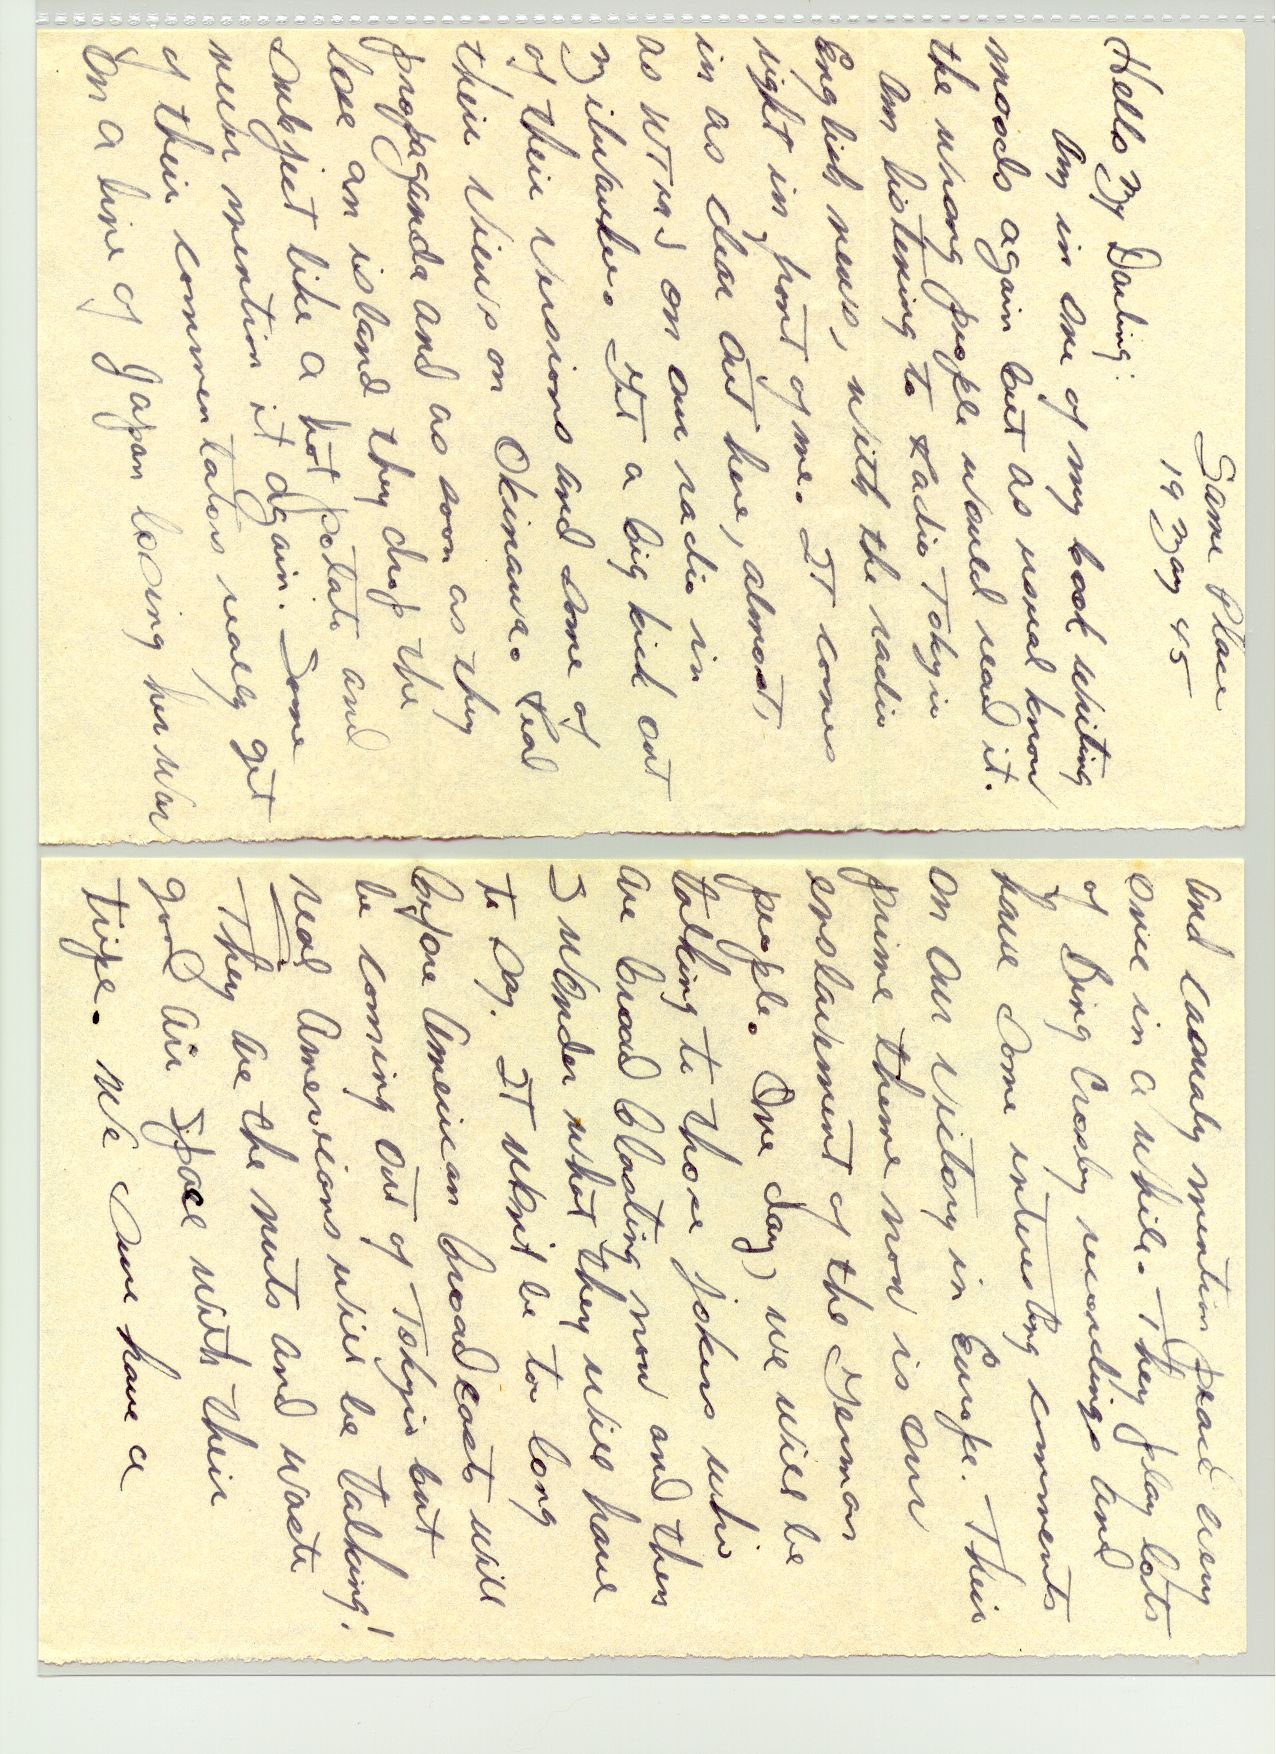 Same Place
19 May 45
Hello My Darling:
Am in one of my book writing
moods again but as usual know
the wrong people would read it.
Am listening to Radio Tokyio
English news, with the radio
right in front of me. It comes
in as clear out here, almost,
as WTMJ on our radio in
Milwaukee. Get a big kick out
of their versions and some of
their views on Okinawa. Real
propaganda and as soon as they
lose an island they drop the
subject like a hot potato and
never mention it again. Some
of their commentators really get
on a line of Japan losing her war
and casualy mention peace every
once in a while. They play lots
of Bing Crosby recordings and
have some intersting comments
on our victory in Europe. Their
prime theme now is our
enslavement of the German
people. One day, we will be
talking to those jokers who
are broad blasting now and then
I wonder what they will have
to say. It wont be to long
before American broadcasts will
be coming out of Tokyio but
real Americans will be talking!
They are the nuts and waste
good air space with their
tripe. We sure have a